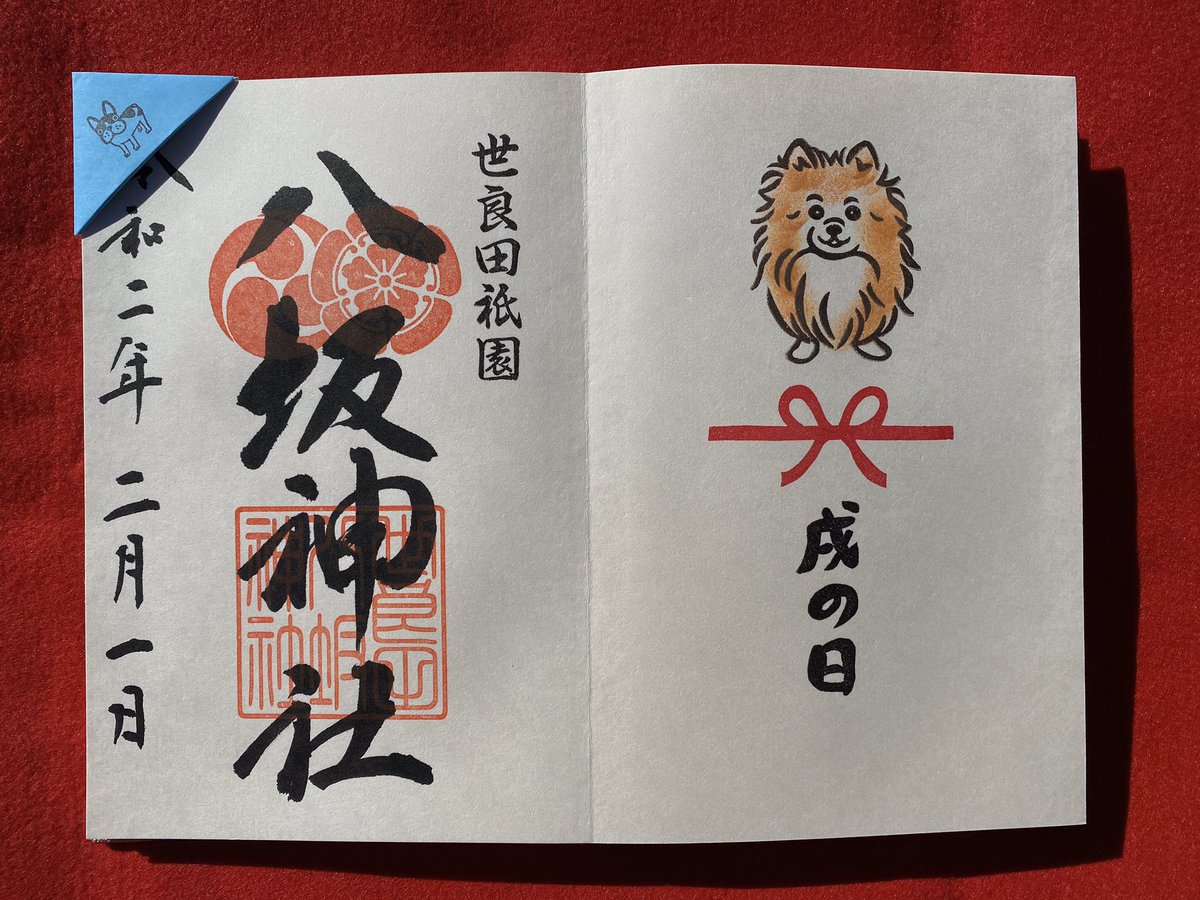 戌の日
世良田祇園
八坂神社
和二年 二月一日